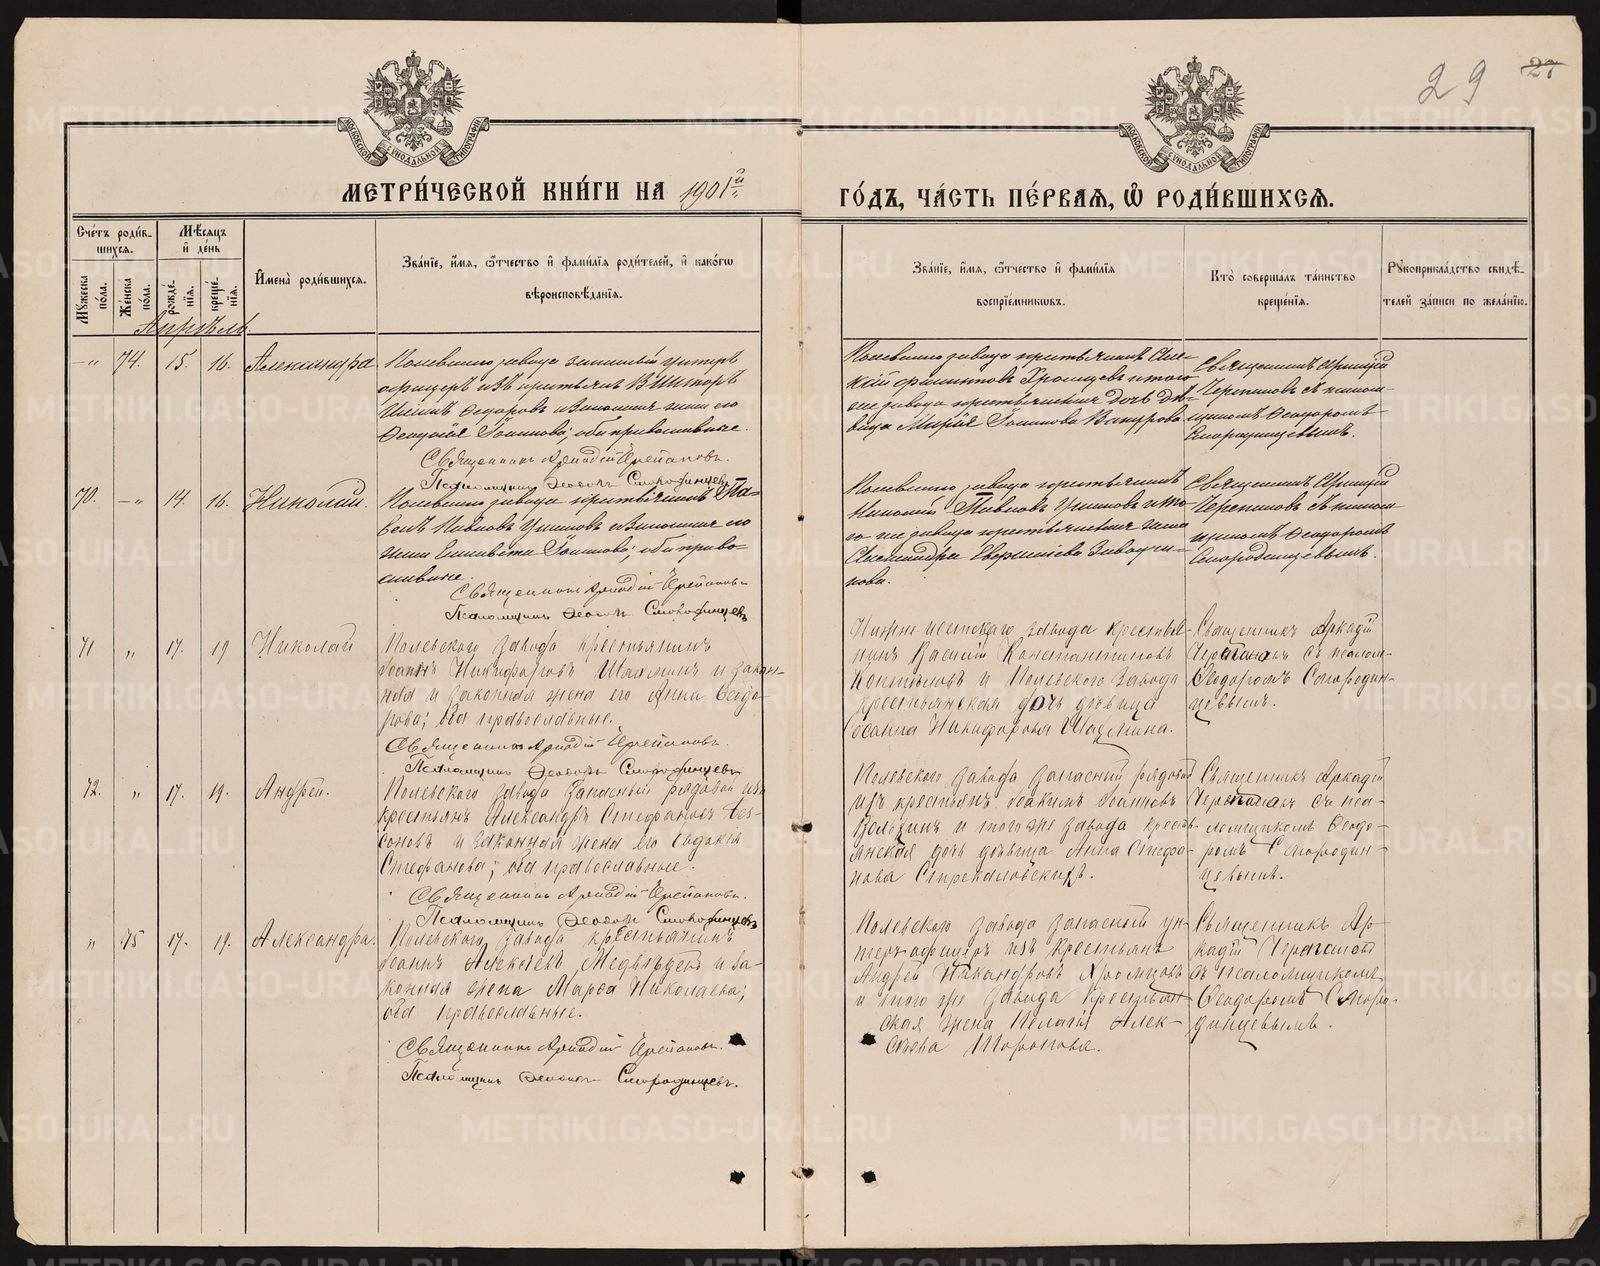 29 27
МОСКОВСКОЙ СѴНОДАЛЬНОЙ ТИПОГРАФІИ
МОСКОВСКОЙ СѴНОДАЛЬНОЙ ТИПОГРАФІИ
МЕТРИ́ЧЕСКОЙ КНИ́ГИ НА 1901й
ГО́ДЪ, ЧА́СТЬ ПЕ́РВАѦ, Ѡ РОДИ́ВШИХСѦ.
Сче́тъ роди́в-
шихся.
Мужеска по́ла.
Же́нска по́ла.
Мѣ́сяцъ
и де́нь
рожде́-
нія.
креще́-
нія.
Имена̀ роди́вшихся.
Зва́ніе, и́мя, ѻ́тчество и фами́лія роди́телей, и како́гѡ
вѣроисповѣ́данія.
Зва́ніе, и́мя, ѻ́тчество и фами́лія
воспріе́мникѡвъ.
Кто̀ соверша́лъ та́инство
креще́нія.
Рукоприкла́дство свидѣ́-
телей за́писи по жела́нію.
Апрѣль
-" 74. 15. 16. Александра
Полевского завода запасный унтеръ
офицеръ изъ крестьянъ Викторъ
Ѳеодоровъ и законная жена его
Іоаннова; оба православные.
Священникъ Аркадій Черепановъ.
Псаломщикъ Ѳеодоръ Смородинцевъ
Полевского завода крестьянинъ Алек-
сѣй Филипповъ Хромцевъ и того
же завода крестьянская дочь дѣ-
вица Марія Іоаннова
Священникъ Аркадій
Черепановъ съ псалом-
щикомъ Ѳеодоромъ
Смородинцевымъ.
70. -" 14. 16. Николай.
Полевского завода крестьянинъ Па-
велъ Павловъ и законная его
жена Елизавета Іоаннова; оба право-
славные.
Священникъ Аркадій Черепановъ
Псаломщикъ Ѳеодоръ Смородинцевъ
Полевского завода крестьянинъ
Николай Павловъ и то-
го же завода крестьянская жена
Александра
Священникъ Аркадій
Черепановъ съ псалом-
щикомъ Ѳеодоромъ
Смородинцевымъ.
71 " 17. 19 Николай
Полевского завода крестьянинъ
Іоаннъ Никифоровъ Шахминъ и закон-
ная и законная жена его Анна Ѳеодо-
рова; оба православные.
Священникъ Аркадій Черепановъ.
Псаломщикъ Ѳеодоръ Смородинцевъ
завода крестья-
нинъ Василій Константиновъ
и Полевского завода
крестьянская дочь дѣвица
Никифорова Шахмина.
Священникъ Аркадій
Черепановъ съ псалом.
Ѳеодоромъ Смородин-
цевымъ.
72. " 17. 19. Андрей.
Полевского завода запасный рядовой изъ
крестьянъ Александръ Стефановъ Без-
соновъ и законная жена его Евдокія
Стефанова; оба православные.
Священникъ Аркадій Черепановъ.
Псаломщикъ Ѳеодоръ Смородинцевъ
Полевского завода запасный рядовой
изъ крестьянъ Іоакимъ Іоанновъ
и того же завода кресть-
янская дочь дѣвица Анна Стефа-
нова
Священникъ Аркадій
Черепановъ съ пса-
ломщикомъ Ѳеодо-
ромъ Смородин-
цевымъ.
" 75 17. 19. Александра.
Полевского завода крестьянинъ
Іоаннъ Алексѣевъ Медвѣдевъ и за-
конная жена Марѳа Николаева;
оба православные.
Священникъ Аркадій Черепановъ.
Псаломщикъ Ѳеодоръ Смородинцевъ.
Полевского завода запасный ун-
теръ-офицеръ изъ крестьянъ
Андрей Никандровъ Хромцовъ
и того же завода крестьян-
ская жена Пелагія Алек-
сѣева
Священникъ Ар-
кадій Черепановъ
съ псаломщикомъ
Ѳеодоромъ Сморо-
динцевымъ.
METRIKI.GASO-URAL.RU